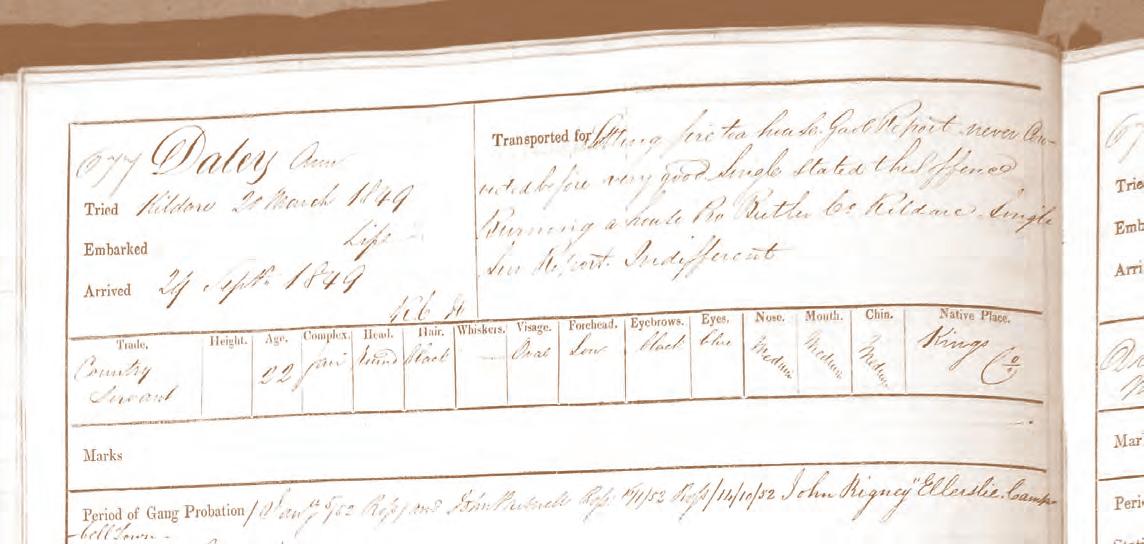 677 Daley Ann
Tried Kildare 20 March 1849
Embarked Life
Arrived 29 Septr 1849
Transported for Setting fire to a house. Gaol Report never Con-
victed before very good Single stated this offence
Burning a house Pro Butler Co Kildare. Single
Sur Report. Indifferent
Trade. Height. Age. Complex. Head. Hair. Whiskers. Visage. Forehead. Eyebrows. Eyes. Nose. Mouth. Chin. Native Place.
Country Servant 22 fair round black Oval Low black blue Medium Medium Medium Kings Co
Marks
Period of Gang Probation / Ross and John Ross 52 Ross/14/10/52 John Rigney "Ellerslie. Camp-
bell Town
Trie
Emb
Arri
Mar
Peri